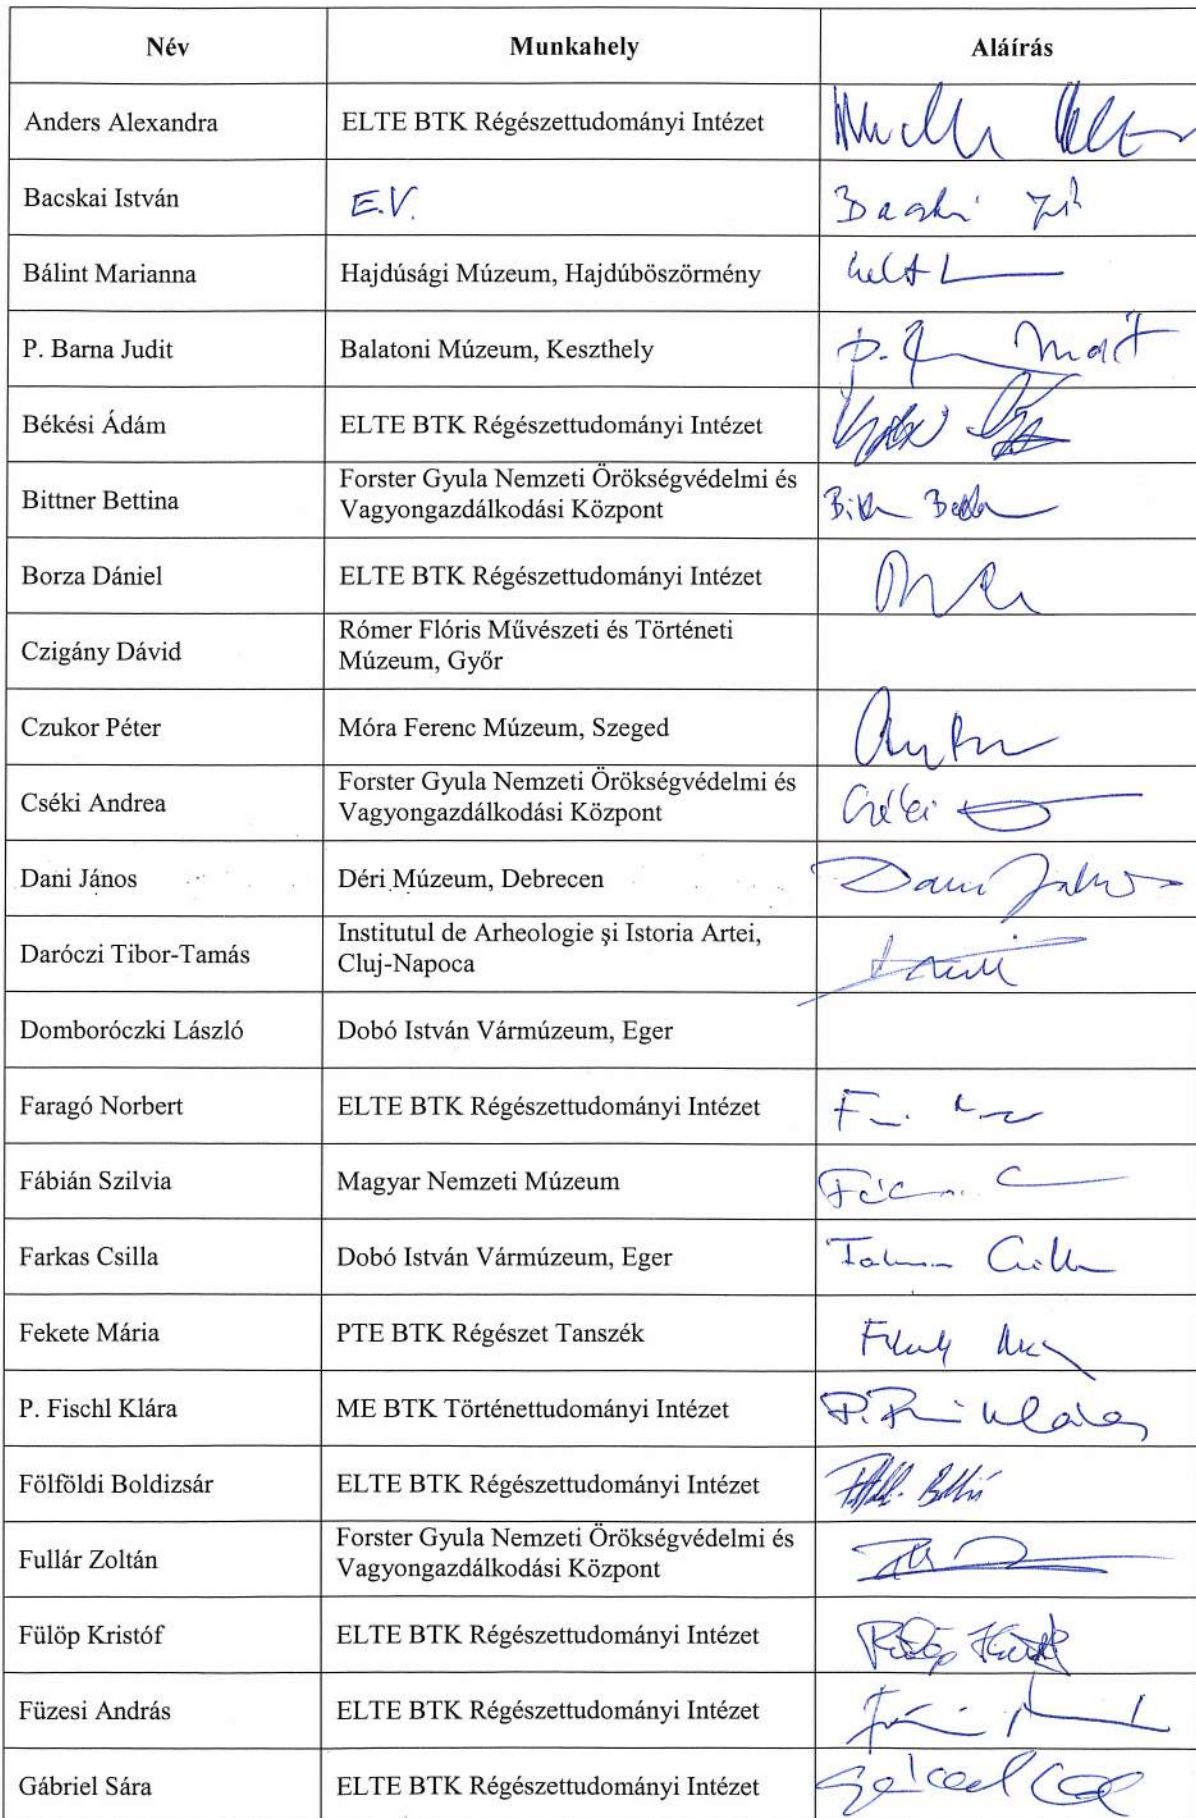 Név Munkahely Aláírás
Anders Alexandra ELTE BTK Régészettudományi Intézet
Bacskai István E.V.
Bálint Marianna Hajdúsági Múzeum, Hajdúböszörmény
P. Barna Judit Balatoni Múzeum, Keszthely
Békési Ádám ELTE BTK Régészettudományi Intézet
Bittner Bettina Forster Gyula Nemzeti Örökségvédelmi és
Vagyongazdálkodási Központ
Borza Dániel ELTE BTK Régészettudományi Intézet
Czigány Dávid Rómer Flóris Művészeti és Történeti
Múzeum, Győr
Czukor Péter Móra Ferenc Múzeum, Szeged
Cséki Andrea Forster Gyula Nemzeti Örökségvédelmi és
Vagyongazdálkodási Központ
Dani János Déri Múzeum, Debrecen Dani János
Daróczi Tibor-Tamás Institutul de Arheologie şi Istoria Artei,
Cluj-Napoca
Domboróczki László Dobó István Vármúzeum, Eger
Faragó Norbert ELTE BTK Régészettudományi Intézet
Fábián Szilvia Magyar Nemzeti Múzeum
Farkas Csilla Dobó István Vármúzeum, Eger
Fekete Mária PTE BTK Régészet Tanszék
P. Fischl Klára ME BTK Történettudományi Intézet
Fölföldi Boldizsár ELTE BTK Régészettudományi Intézet
Fullár Zoltán Forster Gyula Nemzeti Örökségvédelmi és
Vagyongazdálkodási Központ
Fülöp Kristóf ELTE BTK Régészettudományi Intézet
Füzesi András ELTE BTK Régészettudományi Intézet
Gábriel Sára ELTE BTK Régészettudományi Intézet